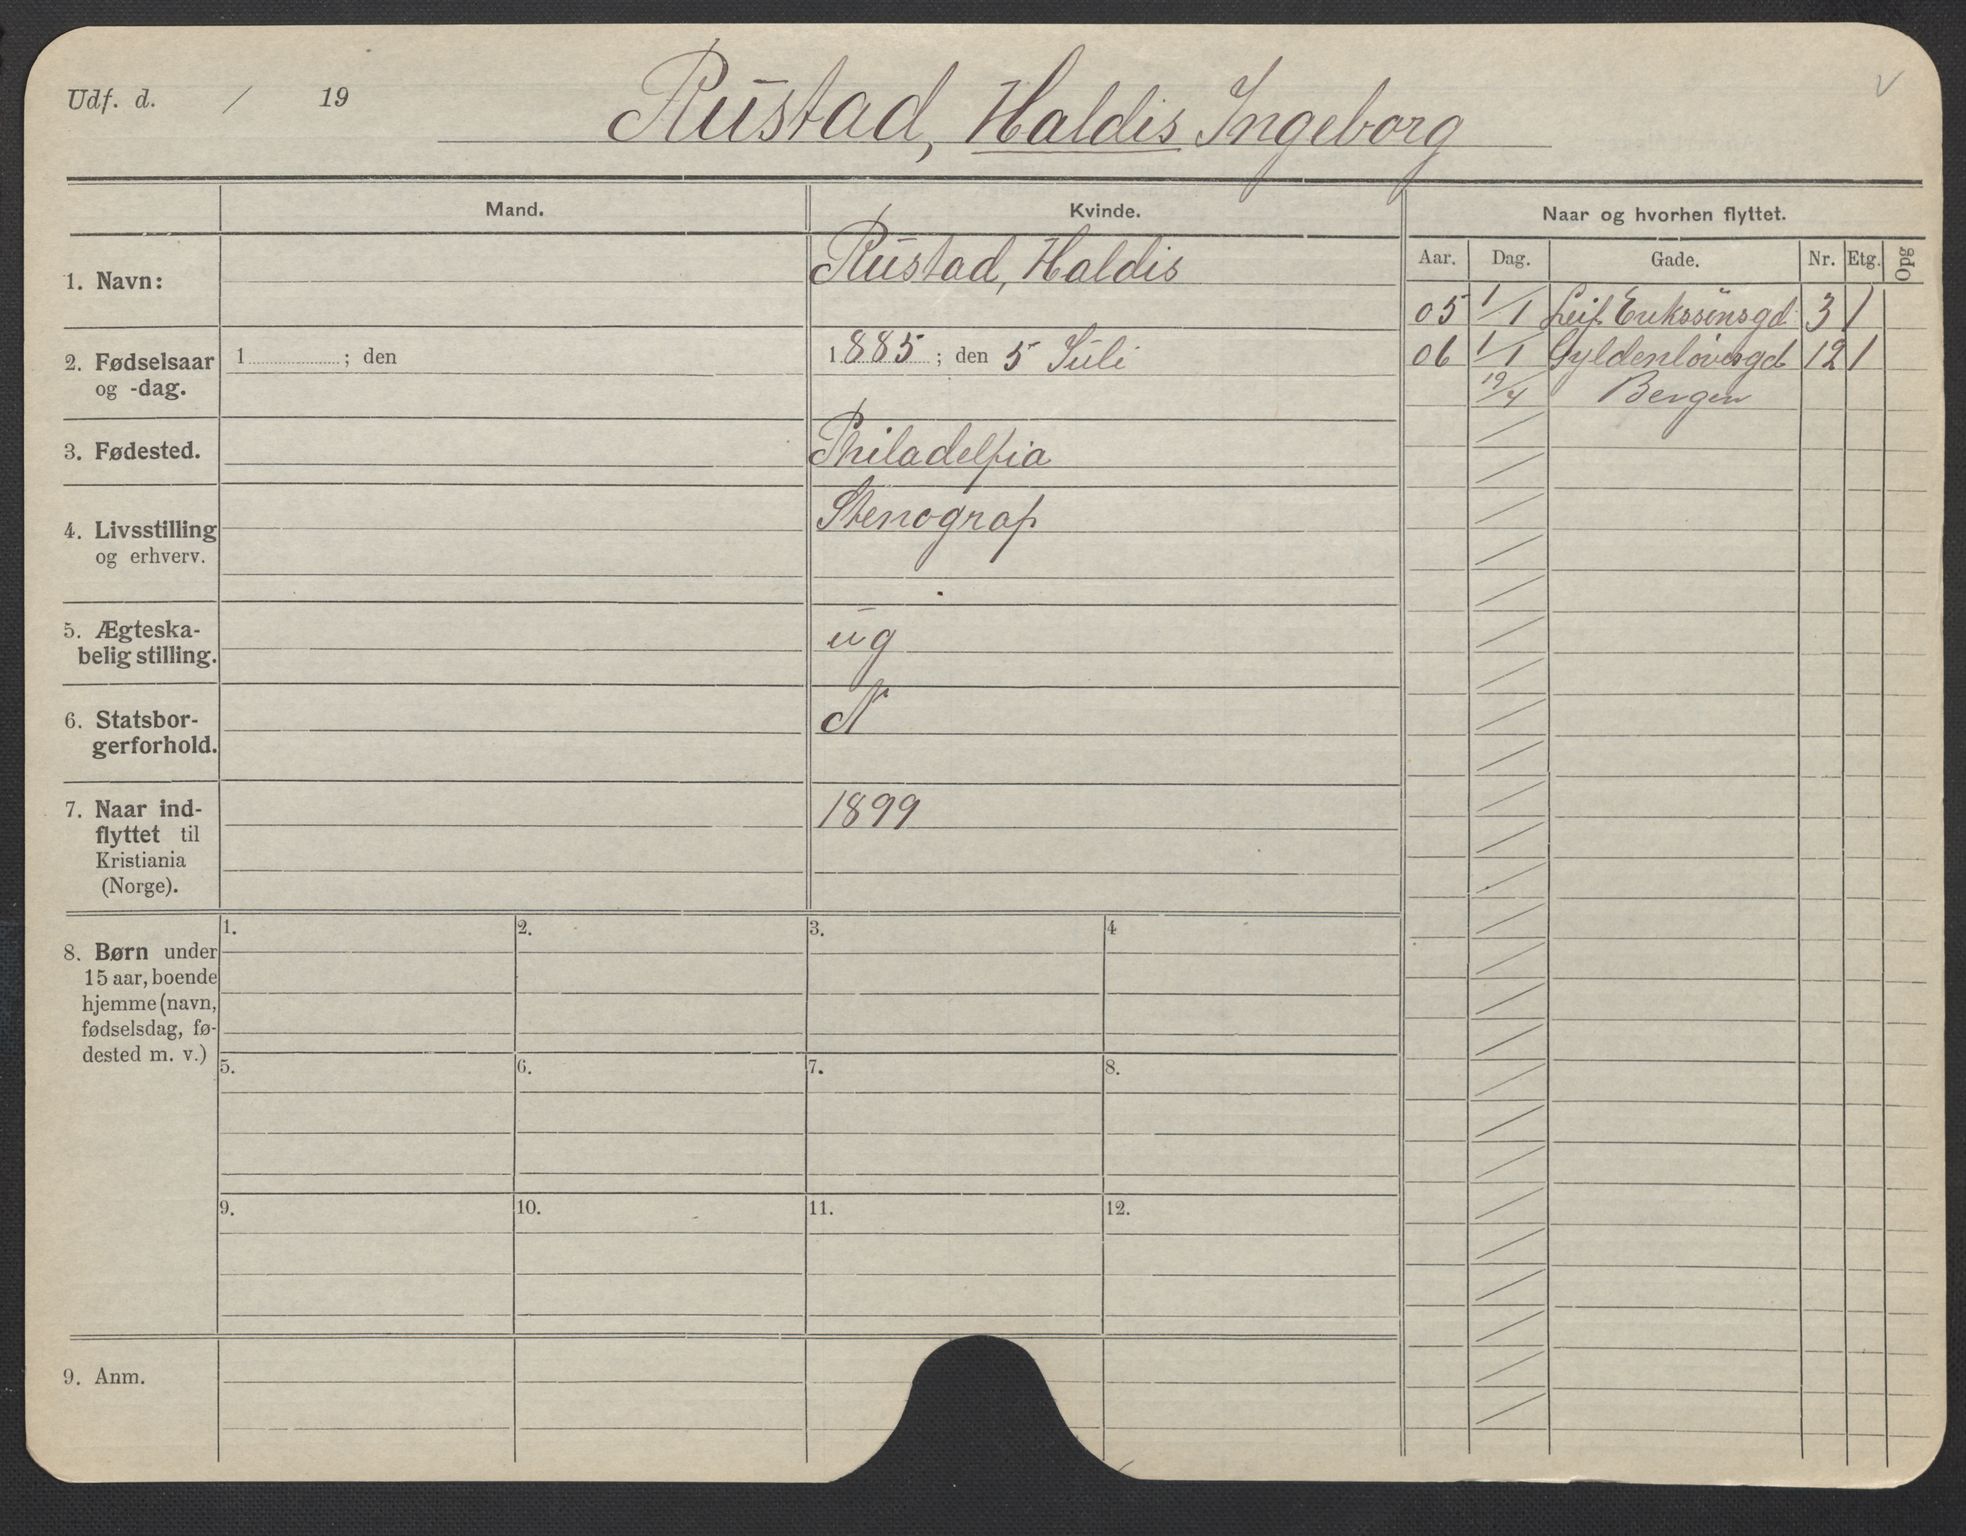 Udf. d. / 19
Rustad, Haldis Ingeborg
Mand. Kvinde. Naar og hvorhen flyttet.
Aar. Dag. Gade. Nr. Etg. Opg
1. Navn: Rustad, Haldis
05 1/1 Leif Erikssønsgd 3 1
2. Fødselsaar og -dag. 1 ; den
1885 ; den 5 Juli
06 1/1 Gyldenløvesgd 12 1
19/4 Bergen
3. Fødested. Philadelfia
4. Livsstilling og erhverv. Stenograf
5. Ægteska-
belig stilling. ug
6. Statsbor-
gerforhold. N
7. Naar ind-
flyttet til
Kristiania
(Norge). 1899
8. Børn under
15 aar, boende
hjemme (navn,
fødselsdag, fø-
dested m. v.)
1. 2. 3. 4
5. 6. 7. 8.
9. 10. 11. 12.
9. Anm.